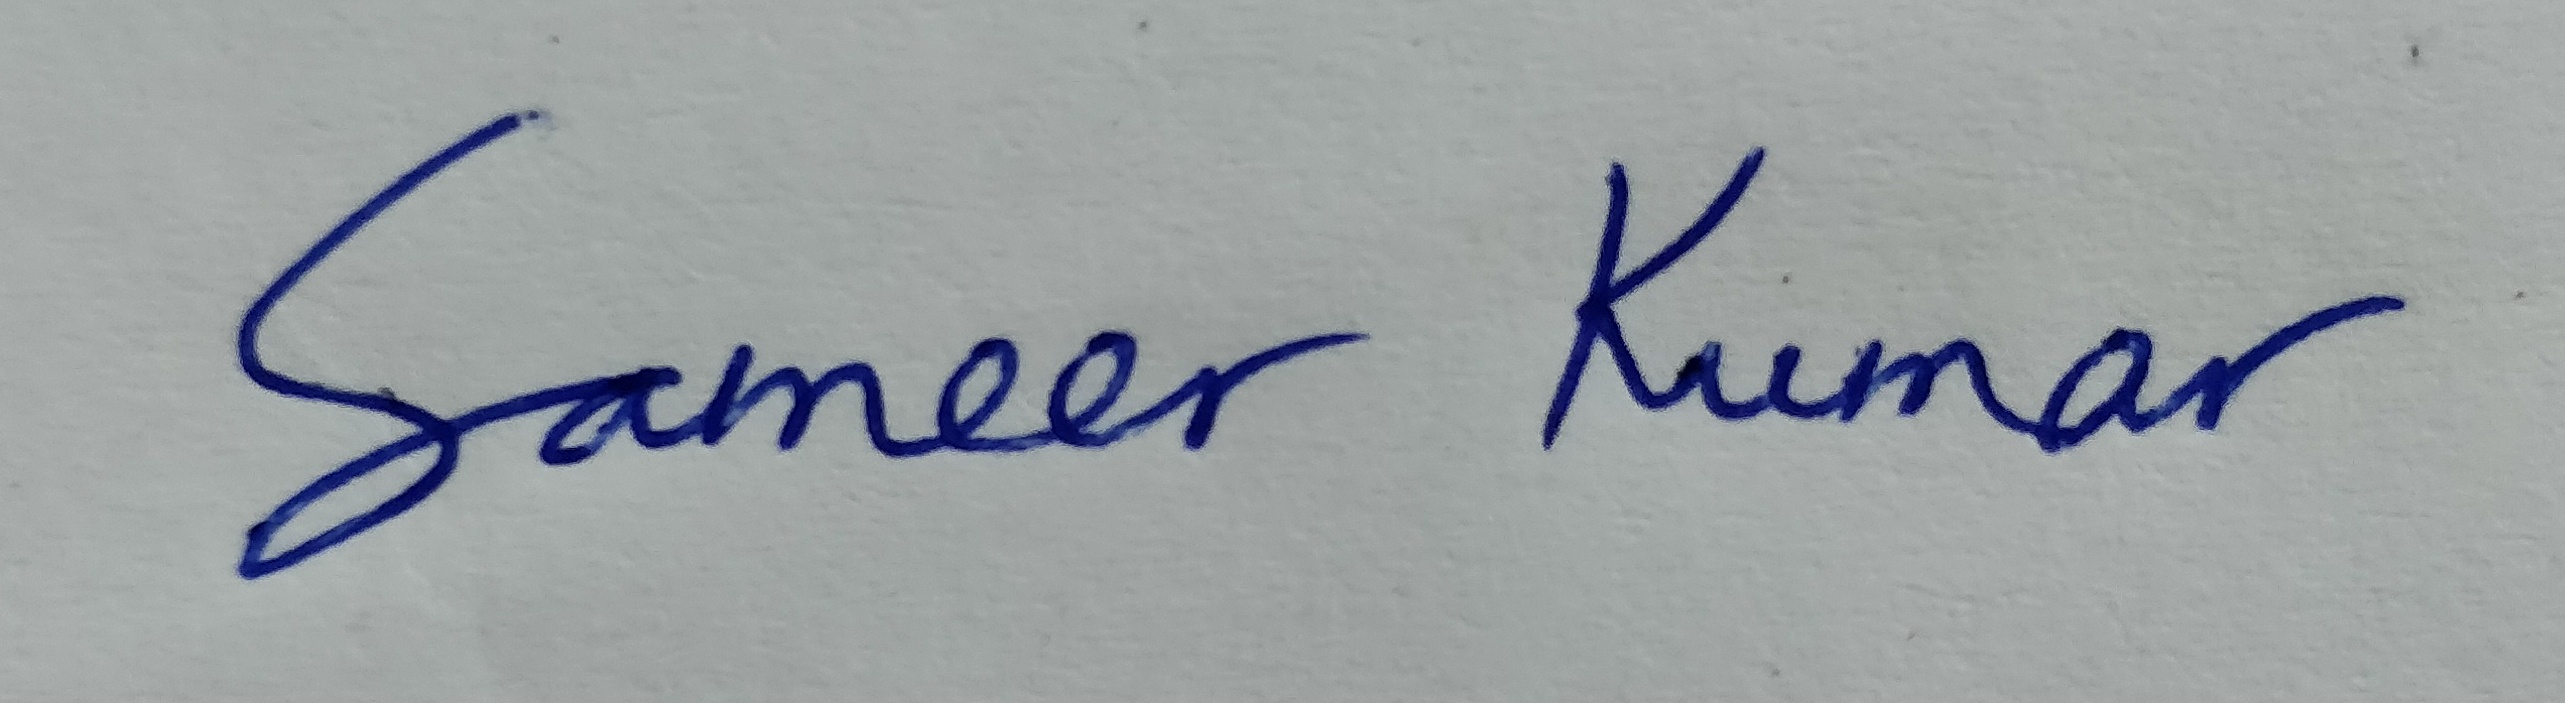 Sameer Kumar